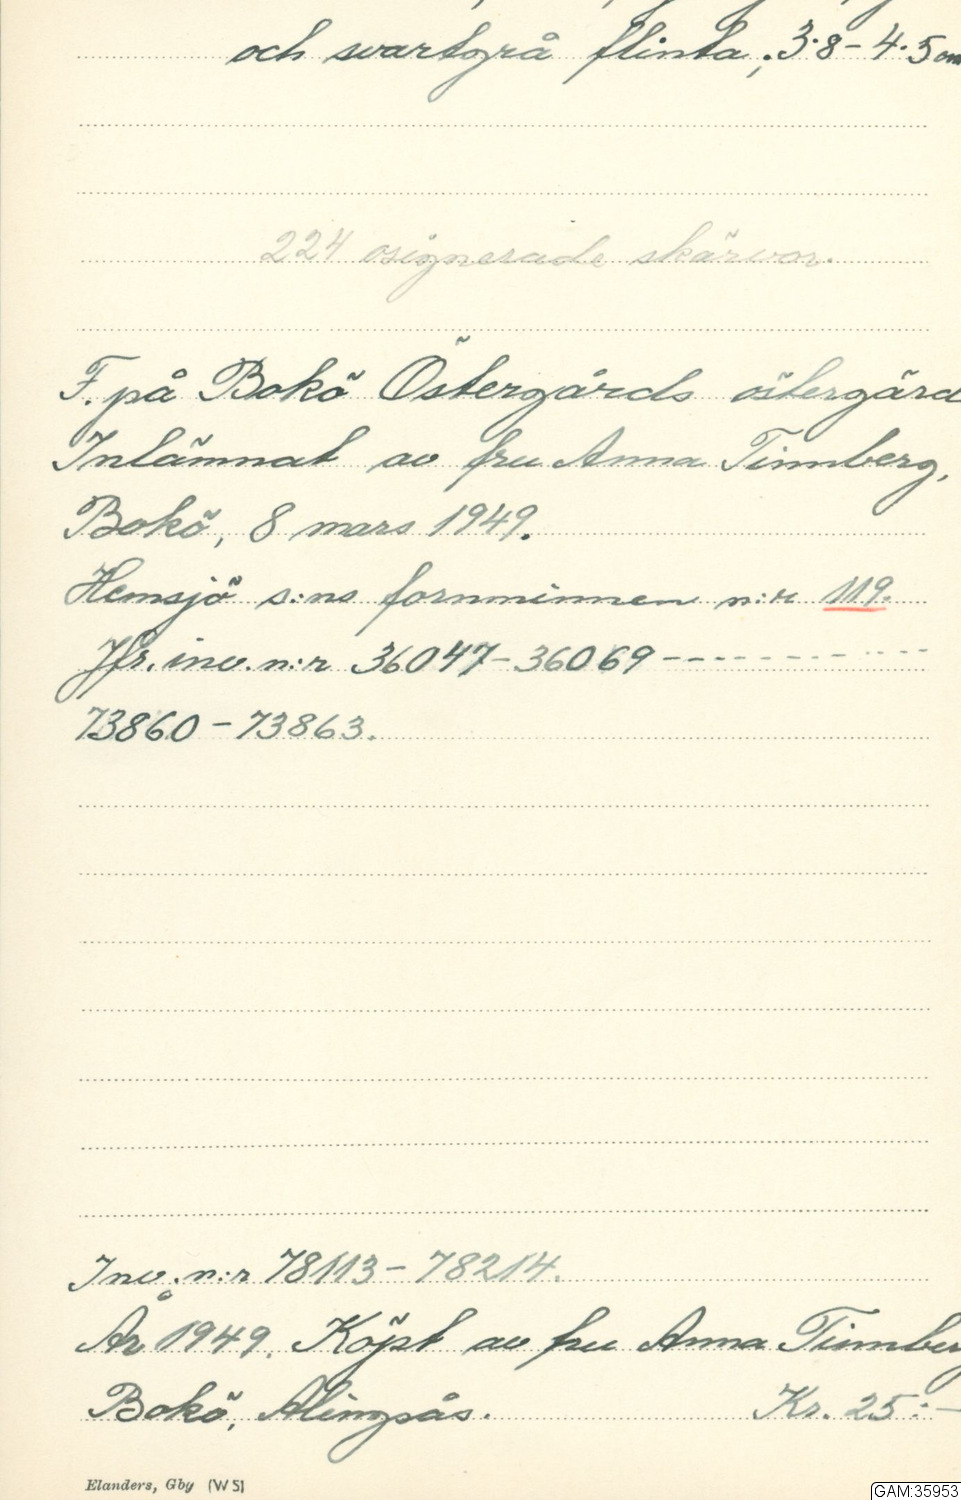 och svartgrå flinta; 3.8-4.5 cm
224 osignerade skärvor.
F. på Bokö Östergårds östergård
Inlämnat av fru Anna Timmberg,
Bokö, 8 mars 1949.
Hemsjö s:ns fornminnen n:r 119.
Jfr. inv. n:r 36047-36069 --------
73860-73863.
Inv. n:r 78113-78214.
År 1949. Köpt av fru Anna Timmberg
Bokö, Alingsås. Kr. 25:-
Elanders, Gby (WS)
GAM:35953